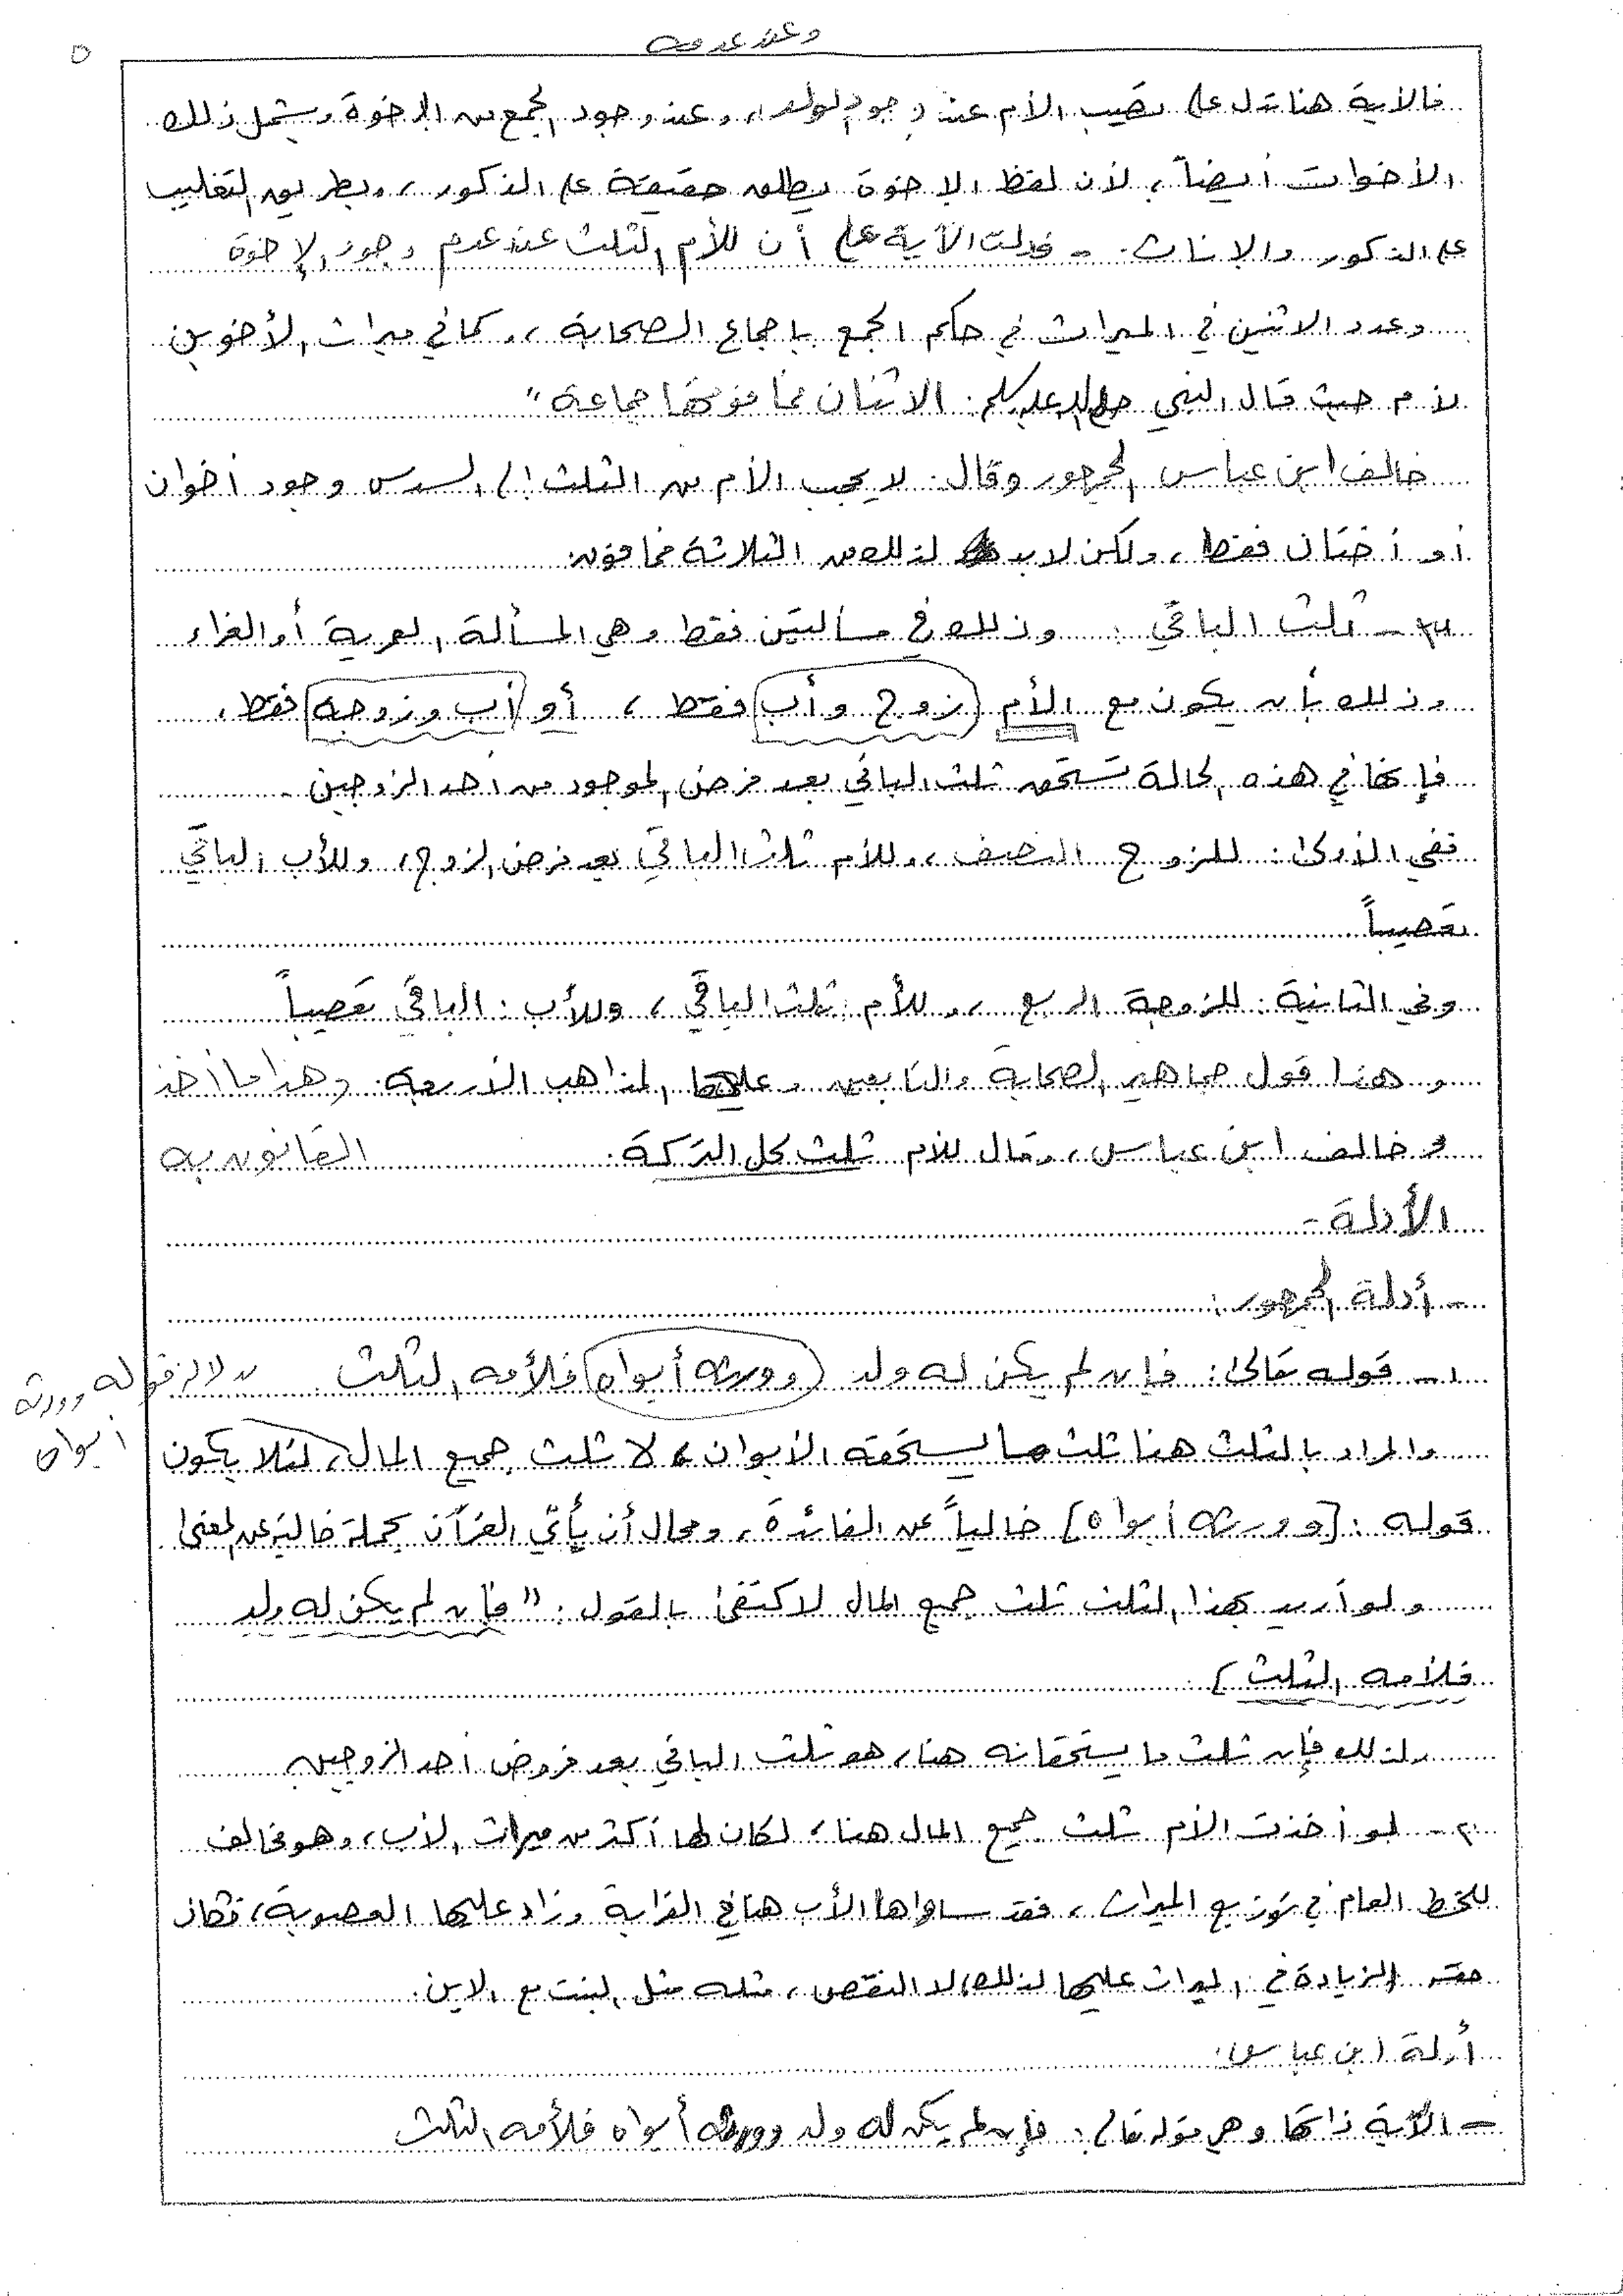 وعند عدمه
٥
فالآية هنا تدل على نصيب الأم عند وجود الولد، وعند وجود الجمع من الإخوة ويشمل ذلك
الأخوات أيضاً، لأن لفظ الإخوة يطلق حقيقة على الذكور، وبطريق التغليب
على الذكور والإناث. - فدلت الآية على أن للأم الثلث عند عدم وجود الإخوة
وعدد الاثنين في الميراث في حكم الجمع بإجماع الصحابة، كما في ميراث الأخوين
لأم حيث قال النبي صلى الله عليه وسلم: الاثنان فما فوقها جماعة"
خالف ابن عباس الجمهور وقال: لا يحجب الأم من الثلث إلى السدس وجود أخوان
أو أختان فقط، ولكن لابد لذلك من الثلاثة فما فوق.
٣- ثلث الباقي: وذلك في مسألتين فقط وهي المسألة العمرية أو الغراء
وذلك بأن يكون مع الأم (زوج وأب) فقط، أو (أب وزوجة) فقط،
فإنها في هذه الحالة تستحق ثلث الباقي بعد فرض الموجود من أحد الزوجين.
ففي الأولى: للزوج النصف، وللأم ثلث الباقي بعد فرض الزوج، وللأب الباقي
تعصيباً
وفي الثانية: للزوجة الربع، وللأم: ثلث الباقي، وللأب: الباقي تعصيباً
وهذا قول جماهير الصحابة والتابعين وعليها المذاهب الأربعة. وهذا ما أخذ
القانون به
وخالف ابن عباس، وقال للأم ثلث كل التركة.
الأدلة-
- أدلة الجمهور:
١- قوله تعالى: فإن لم يكن له ولد (وورثه أبواه) فلأمه الثلث
لدلالة قوله وورثه
أبواه
والمراد بالثلث هنا ثلث ما يستحقه الأبوان، لا ثلث جميع المال، لئلا يكون
قوله: [وورثه أبواه] خالياً عن الفائدة، ومحال أن يأتي القرآن بجملة خالية عن المعنى
ولو أريد بهذا الثلث ثلث جميع المال لاكتفى بالقول: "فإن لم يكن له ولد
فلأمه الثلث).
لذلك فإن ثلث ما يستحقانه هنا، هو ثلث الباقي بعد فروض أحد الزوجين
٢- لو أخذت الأم ثلث جميع المال هنا، لكان لها أكثر من ميراث الأب، وهو مخالف
للخط العام في توزيع الميراث، فقد ساواها الأب هنا في القرابة وزاد عليها العصوبة، فكان
حقه الزيادة في الميراث عليها لذلك، لا النقص، مثله مثل البنت مع الابن.
أدلة ابن عباس:
- الآية ذاتها وهي قوله تعالى: فإن لم يكن له ولد وورثه أبواه فلأمه الثلث